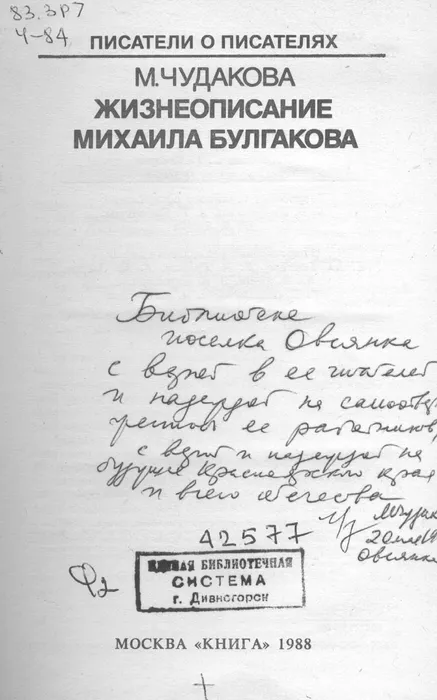 83.3Р7
Ч-84
ПИСАТЕЛИ О ПИСАТЕЛЯХ
М.ЧУДАКОВА
ЖИЗНЕОПИСАНИЕ
МИХАИЛА БУЛГАКОВА
Библиотеке
поселка Овсянка
с верой в ее читателей
и надеждой на самоотвер
женность ее работников,
с верой и надеждой на
будущее Красноярского края
и всего отечества
МЧудак
Овсянка
42577
Ф2
БИБЛИОТЕЧНАЯ
СИСТЕМА
г. Дивногорск
МОСКВА «КНИГА» 1988